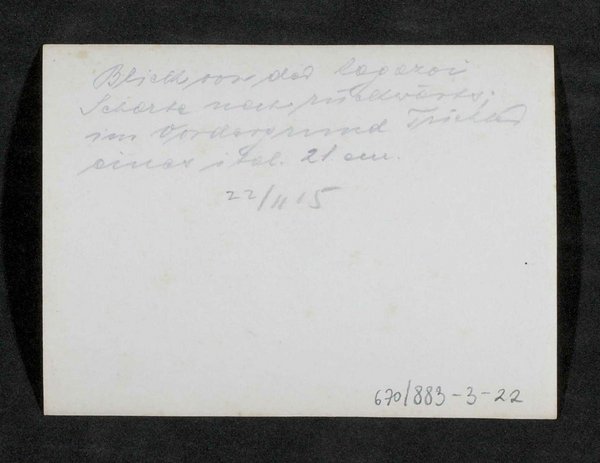 Blick von der Lagazoi
Scharte nach rückwärts;
im Vordergrund Trichter
einer ital. 21 cm.
22/II 15
670/883-3-22